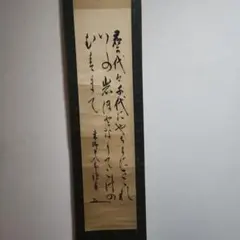 君か代は千代にやちよにさゝれ
いしの岩ほとなりてこけの
むすまて